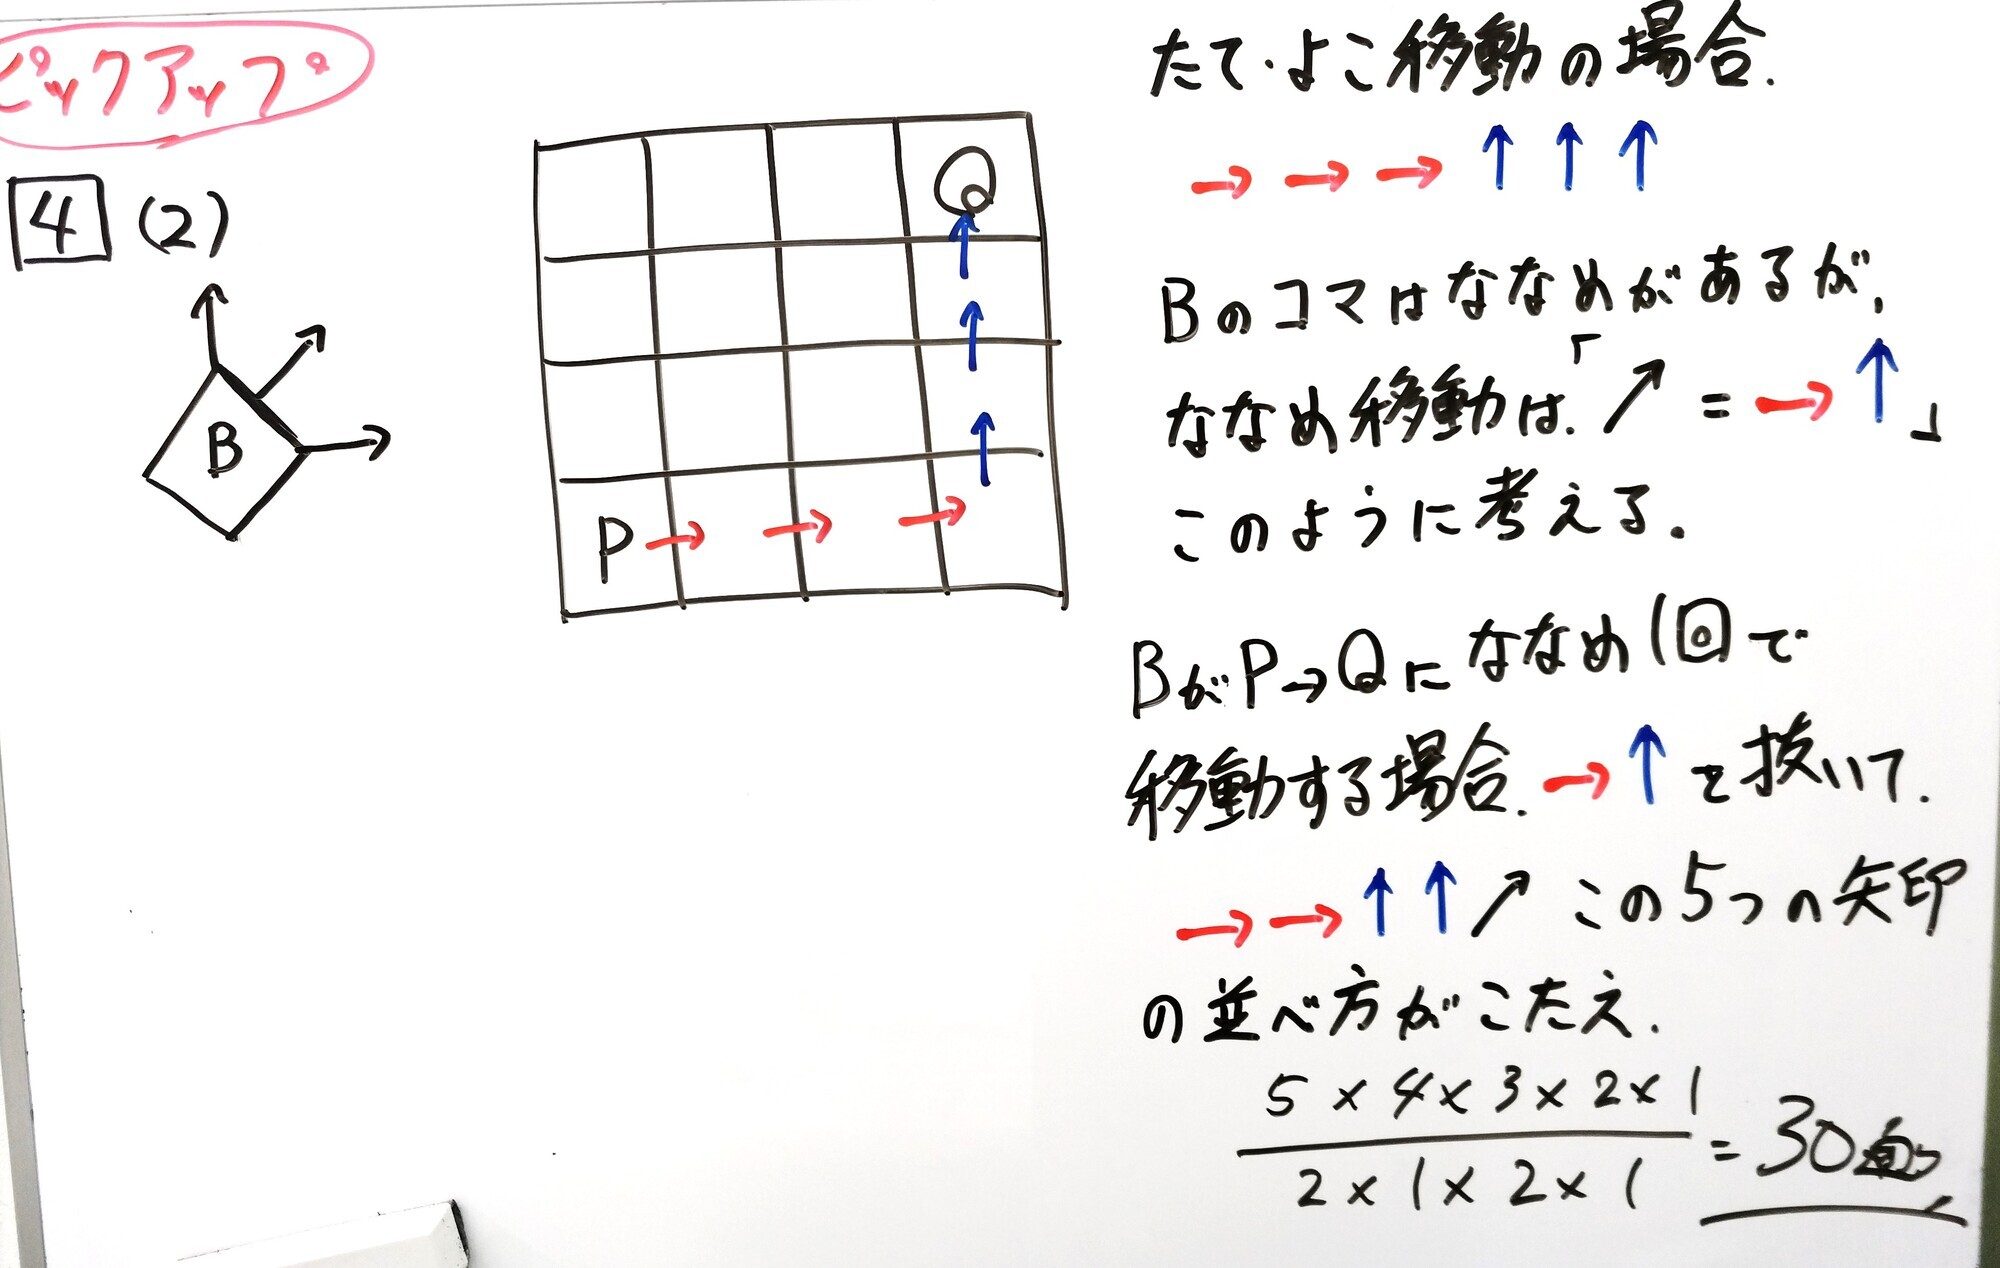 ピックアップ
4 (2)
B
Q
P
たて・よこ移動の場合.
→ → → ↑ ↑ ↑
Bのコマはななめがあるが,
ななめ移動は.「↗ = → ↑」
このように考える.
BがP→Qにななめ1回で
移動する場合. → ↑ を抜いて.
→ → ↑ ↑ ↗ この5つの矢印
の並べ方がこたえ.
5 × 4 × 3 × 2 × 1
2 × 1 × 2 × 1
= 30